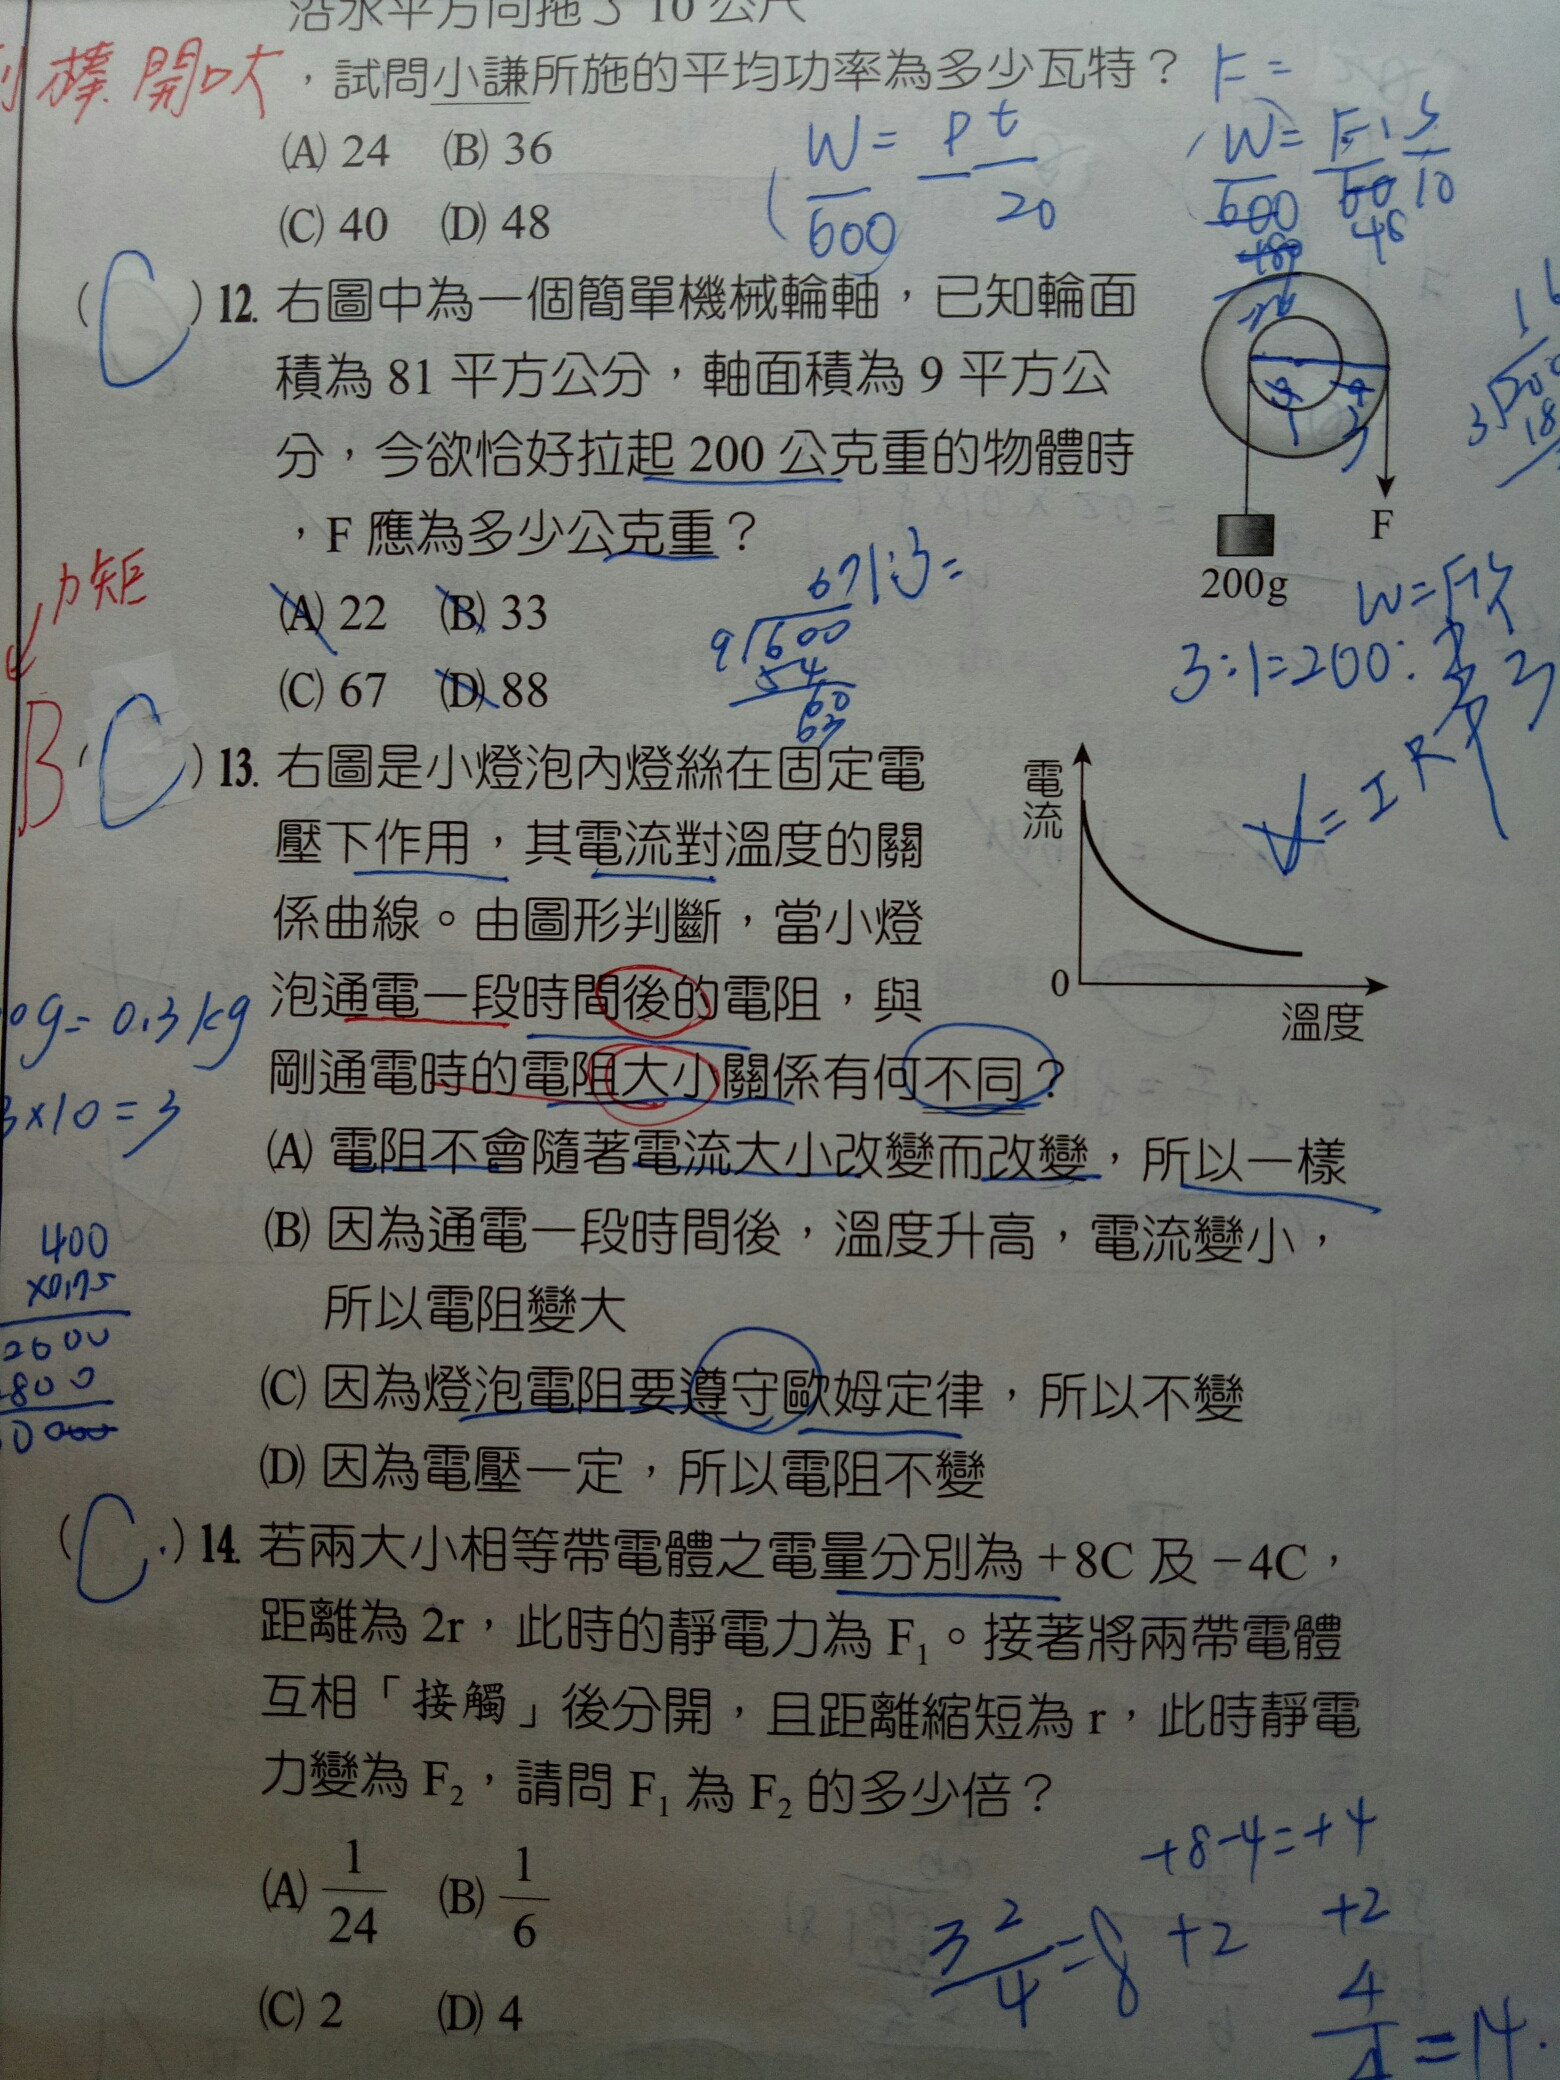 沿水平方向拖了 10 公尺
棒 開吠
，試問小謙所施的平均功率為多少瓦特？
F =
(A) 24 (B) 36
W = P t
600 20
W = F · S
600 60 10
48
(C) 40 (D) 48
( C ) 12. 右圖中為一個簡單機械輪軸，已知輪面
積為 81 平方公分，軸面積為 9 平方公
分，今欲恰好拉起 200 公克重的物體時
，F 應為多少公克重？
(A) 22 (B) 33
(C) 67 (D) 88
F
200g
3:1=200:
9 600
54
60
63
力矩
B ( C ) 13. 右圖是小燈泡內燈絲在固定電
壓下作用，其電流對溫度的關
係曲線。由圖形判斷，當小燈
泡通電一段時間後的電阻，與
剛通電時的電阻大小關係有何不同？
電流
0
溫度
V = I R
(A) 電阻不會隨著電流大小改變而改變，所以一樣
(B) 因為通電一段時間後，溫度升高，電流變小，
所以電阻變大
(C) 因為燈泡電阻要遵守歐姆定律，所以不變
(D) 因為電壓一定，所以電阻不變
0g = 0.3kg
3×10=3
400
( C ) 14. 若兩大小相等帶電體之電量分別為 +8C 及 -4C，
距離為 2r，此時的靜電力為 F₁。接著將兩帶電體
互相「接觸」後分開，且距離縮短為 r，此時靜電
力變為 F₂，請問 F₁ 為 F₂ 的多少倍？
(A) 1/24 (B) 1/6
(C) 2 (D) 4
+8-4=+4
+2 +2
32/4=8
4/4=14.